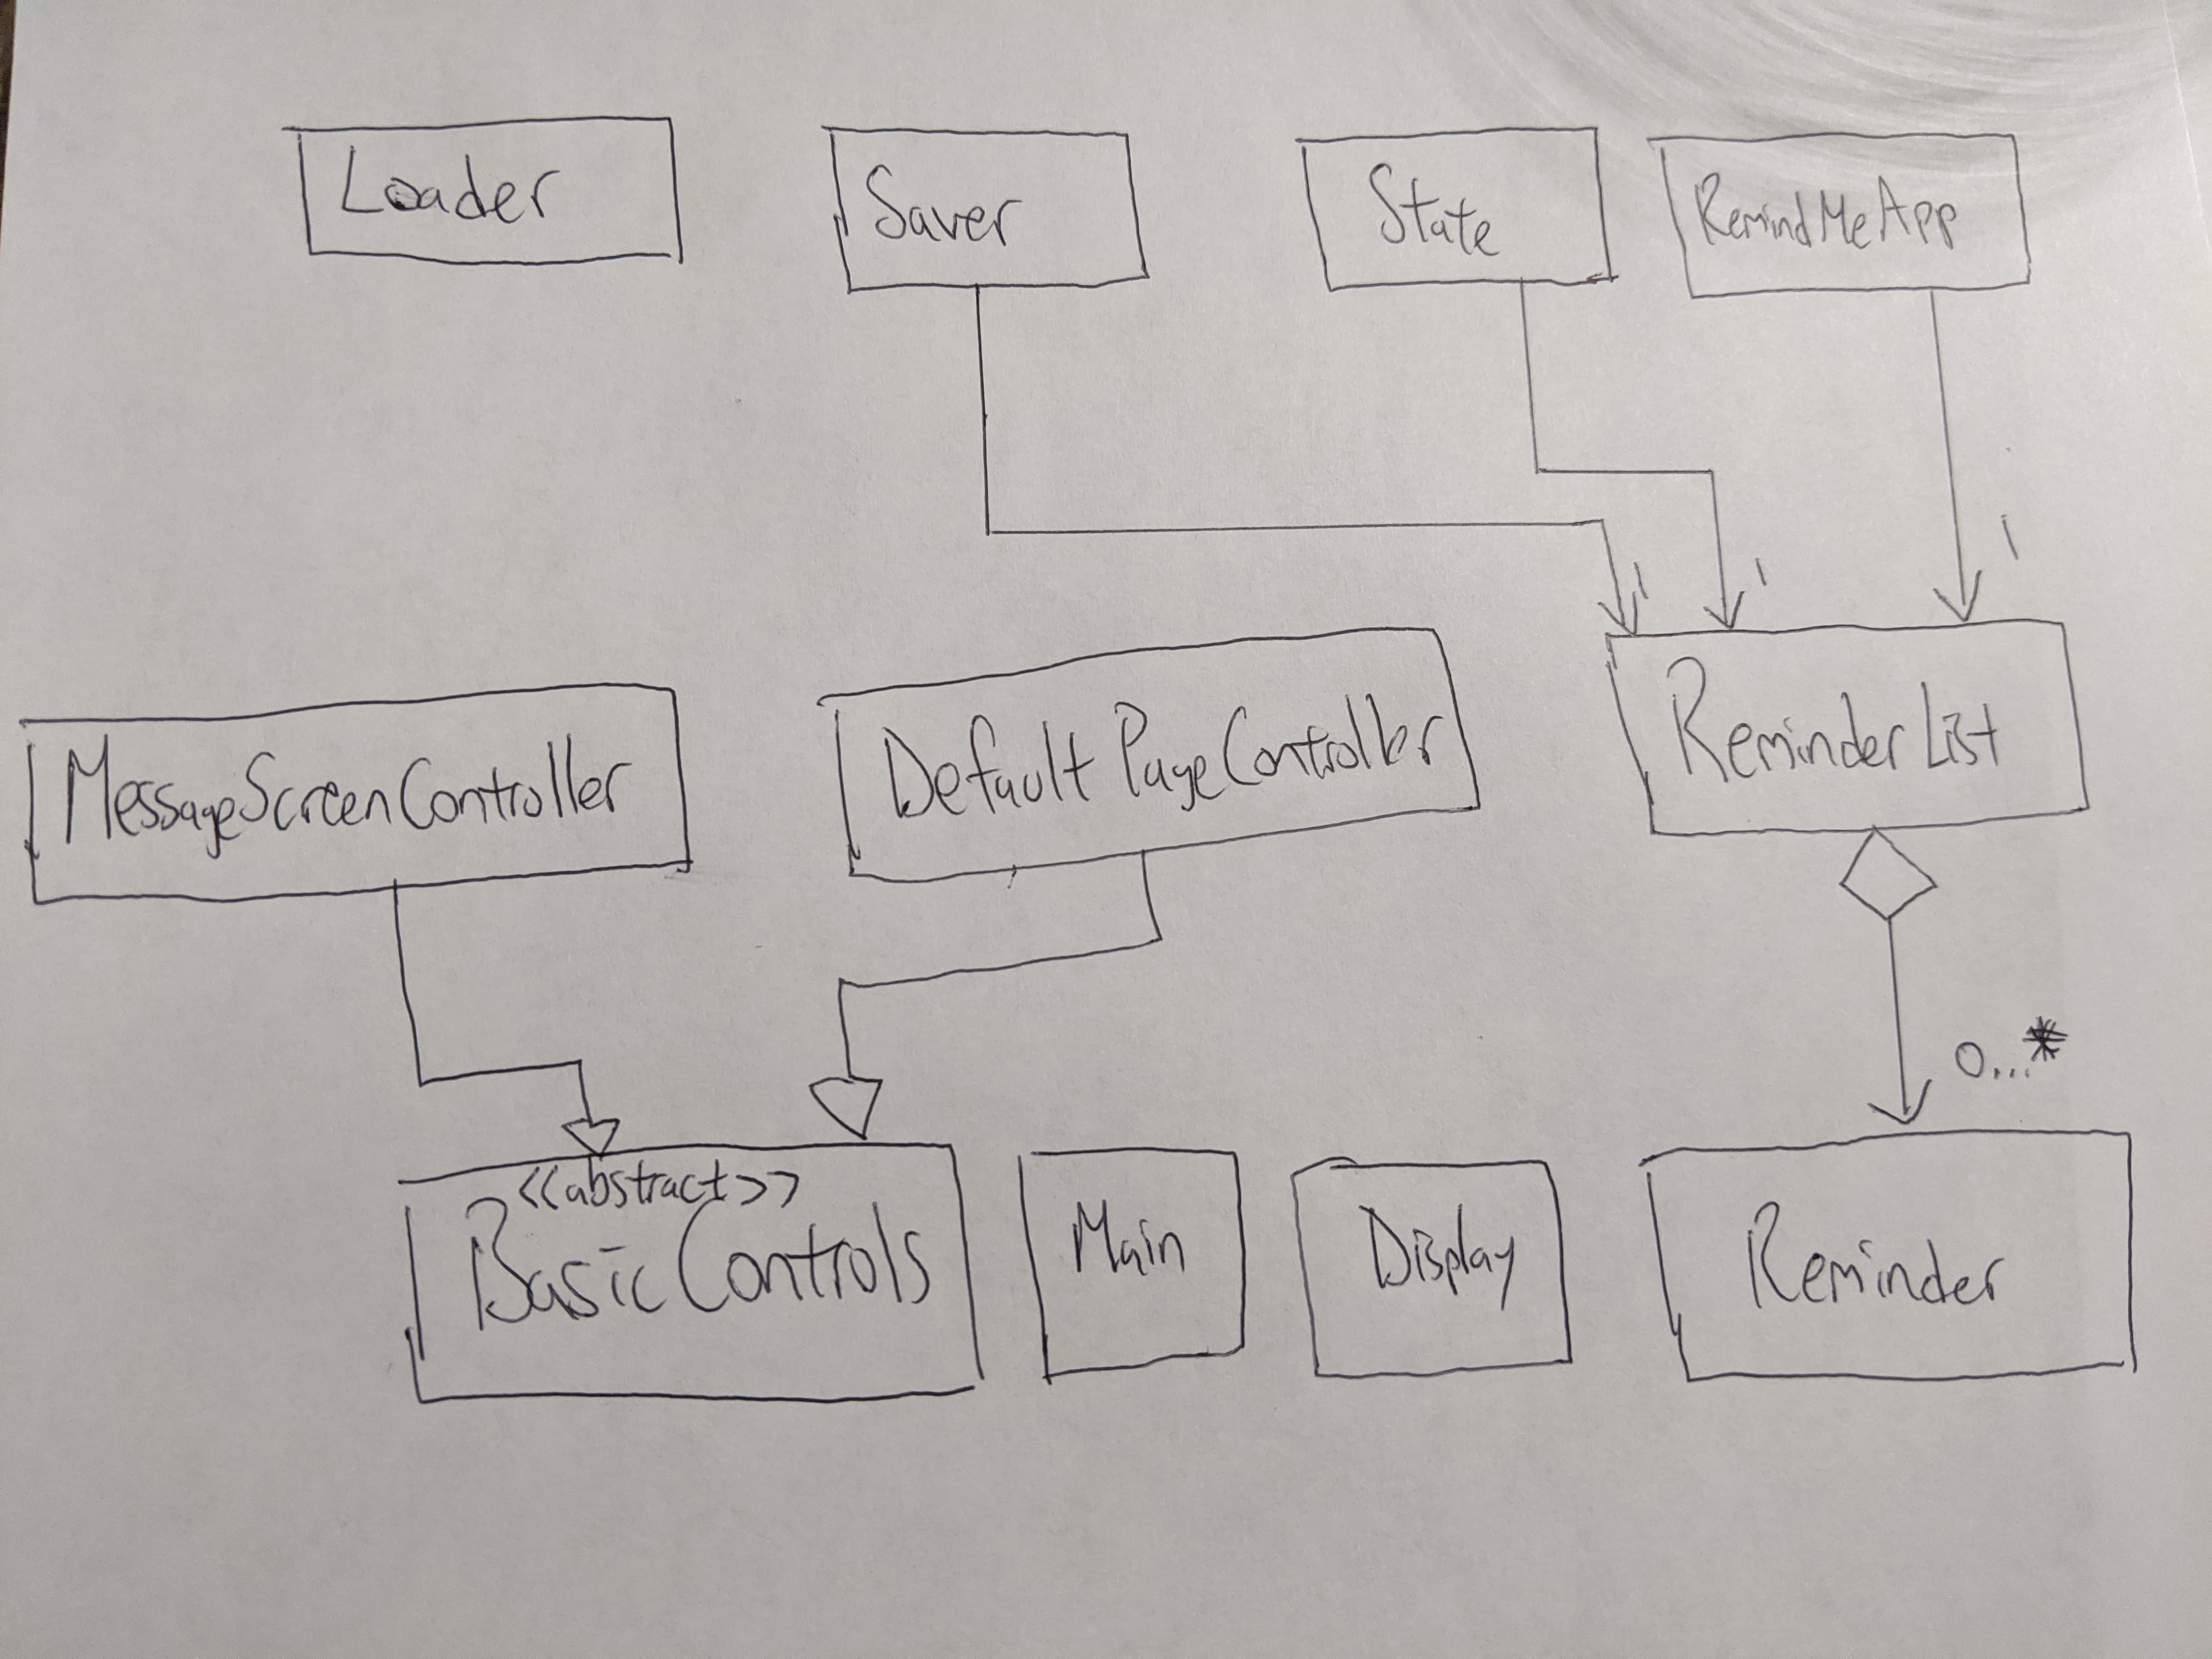 Loader
Saver
State
RemindMeApp
1
1
1
MessageScreenController
DefaultPageController
ReminderList
0...*
<<abstract>>
BasicControls
Main
Display
Reminder